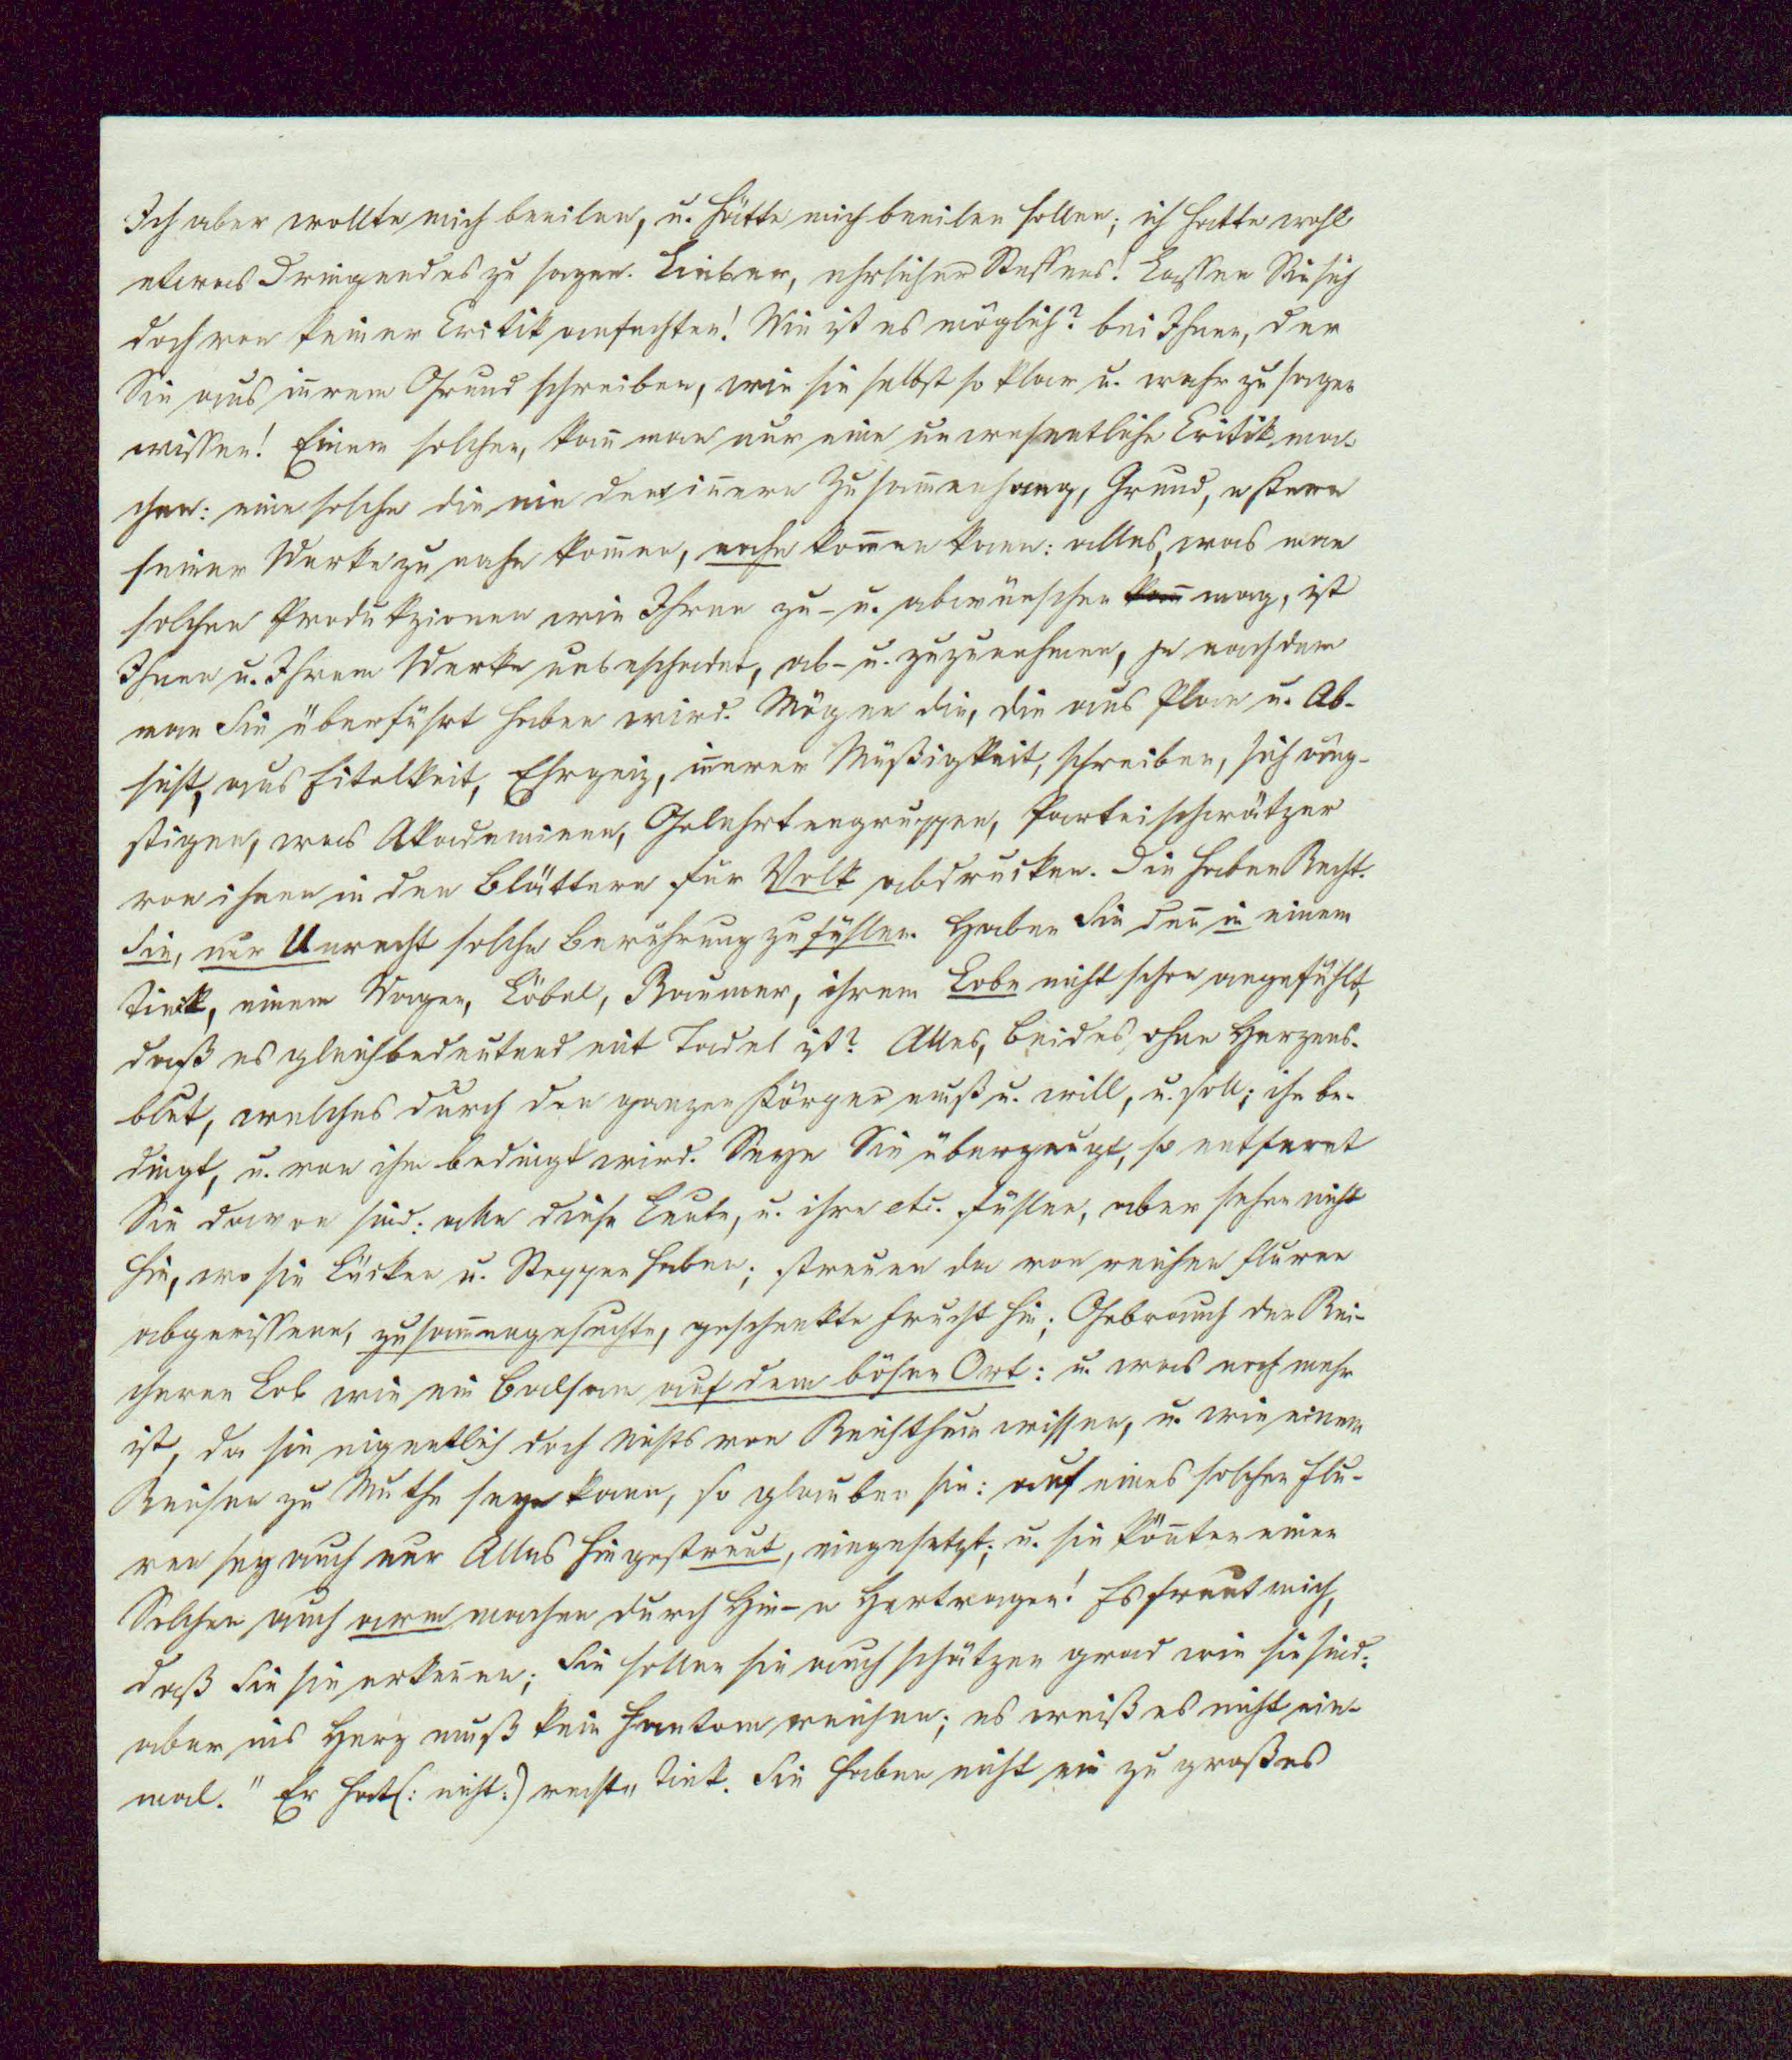 Ich aber wollte mich beeilen, u. hätte mich beeilen sollen; ich hatte wohl
etwas Dringendes zu sagen. Lieber, ehrlicher Steffens! Lassen Sie sich
doch von keiner Critik anfechten! Wie ist es möglich? bei Ihnen, der
Sie aus in̅rem Grund schreiben, wie sie selbst so klar u. wahr zu sagen
wissen! Einem solchen, kan̅ man nur eine unwesentliche Critik ma-
chen: eine solche die nie den in̅ern Zusam̅enhang, Grund, u Kern
seiner Werke zu nahe kom̅en, nahe kom̅en kann: alles, was man
solchen Produkzionen wie Ihren zu- u. abwünschen kan̅ mag, ist
Ihnen u. Ihrem Werke unbeschadet, ab- u. zuzunehmen, je nachdem
man Sie überführt haben wird. Mögen die, die aus Plan u. Ab-
sicht, aus Eitelkeit, Ehrgeiz, in̅erer Müßigkeit, schreiben, sich äng-
stigen, was Akademieen, Gelehrtengruppen, Parteischwätzer
von ihnen in den Blättern für Volk abdrucken. Die haben Recht.
Sie, nur Unrecht solche Berührung zu fühlen. Haben Sie den̅ in einem
Tieck, einem Wagen, Löbel, Raumer, ihrem Lobe nicht schon angefühlt,
daß es gleichbedeutend mit Tadel ist? Alles, beides, ohne Herzens-
blut, welches durch den ganzen Körper muß u. will, u. soll; ihn be-
dingt, u. von ihm bedingt wird. Seyn Sie überzeugt, so entfernt
Sie davon sind: alle diese Leute, u. ihre etc. fühlen, aber sehen nicht
hin, wo sie Lücken u. Steppen haben; streuen da von reichen Fluren
abgerissene, zusam̅engesuchte, geschenkte Frucht hin; Gebrauch der Rei-
cheren Lob wie ein Balsam auf dem bösen Ort: u. was noch mehr
ist, da sie eigentlich doch nichts von Reichthum wissen, u. wie einem
Reichen zu Muthe seyn kann, so glauben sie: auf eines solchen Flu-
ren sey auch nur Alles hingestreut, eingesetzt; u. sie kön̅ten einen
Solchen auch arm machen durch Hin- u Hertragen! Es freut mich,
daß Sie sie erken̅en; Sie sollen sie auch schätzen grad wie sie sind:
aber ins Herz muß kein Fantom reichen; es weiß es nicht ein-
mal. " Er hat (: nicht :) recht„ Tiek. Sie haben nicht ein zu großes